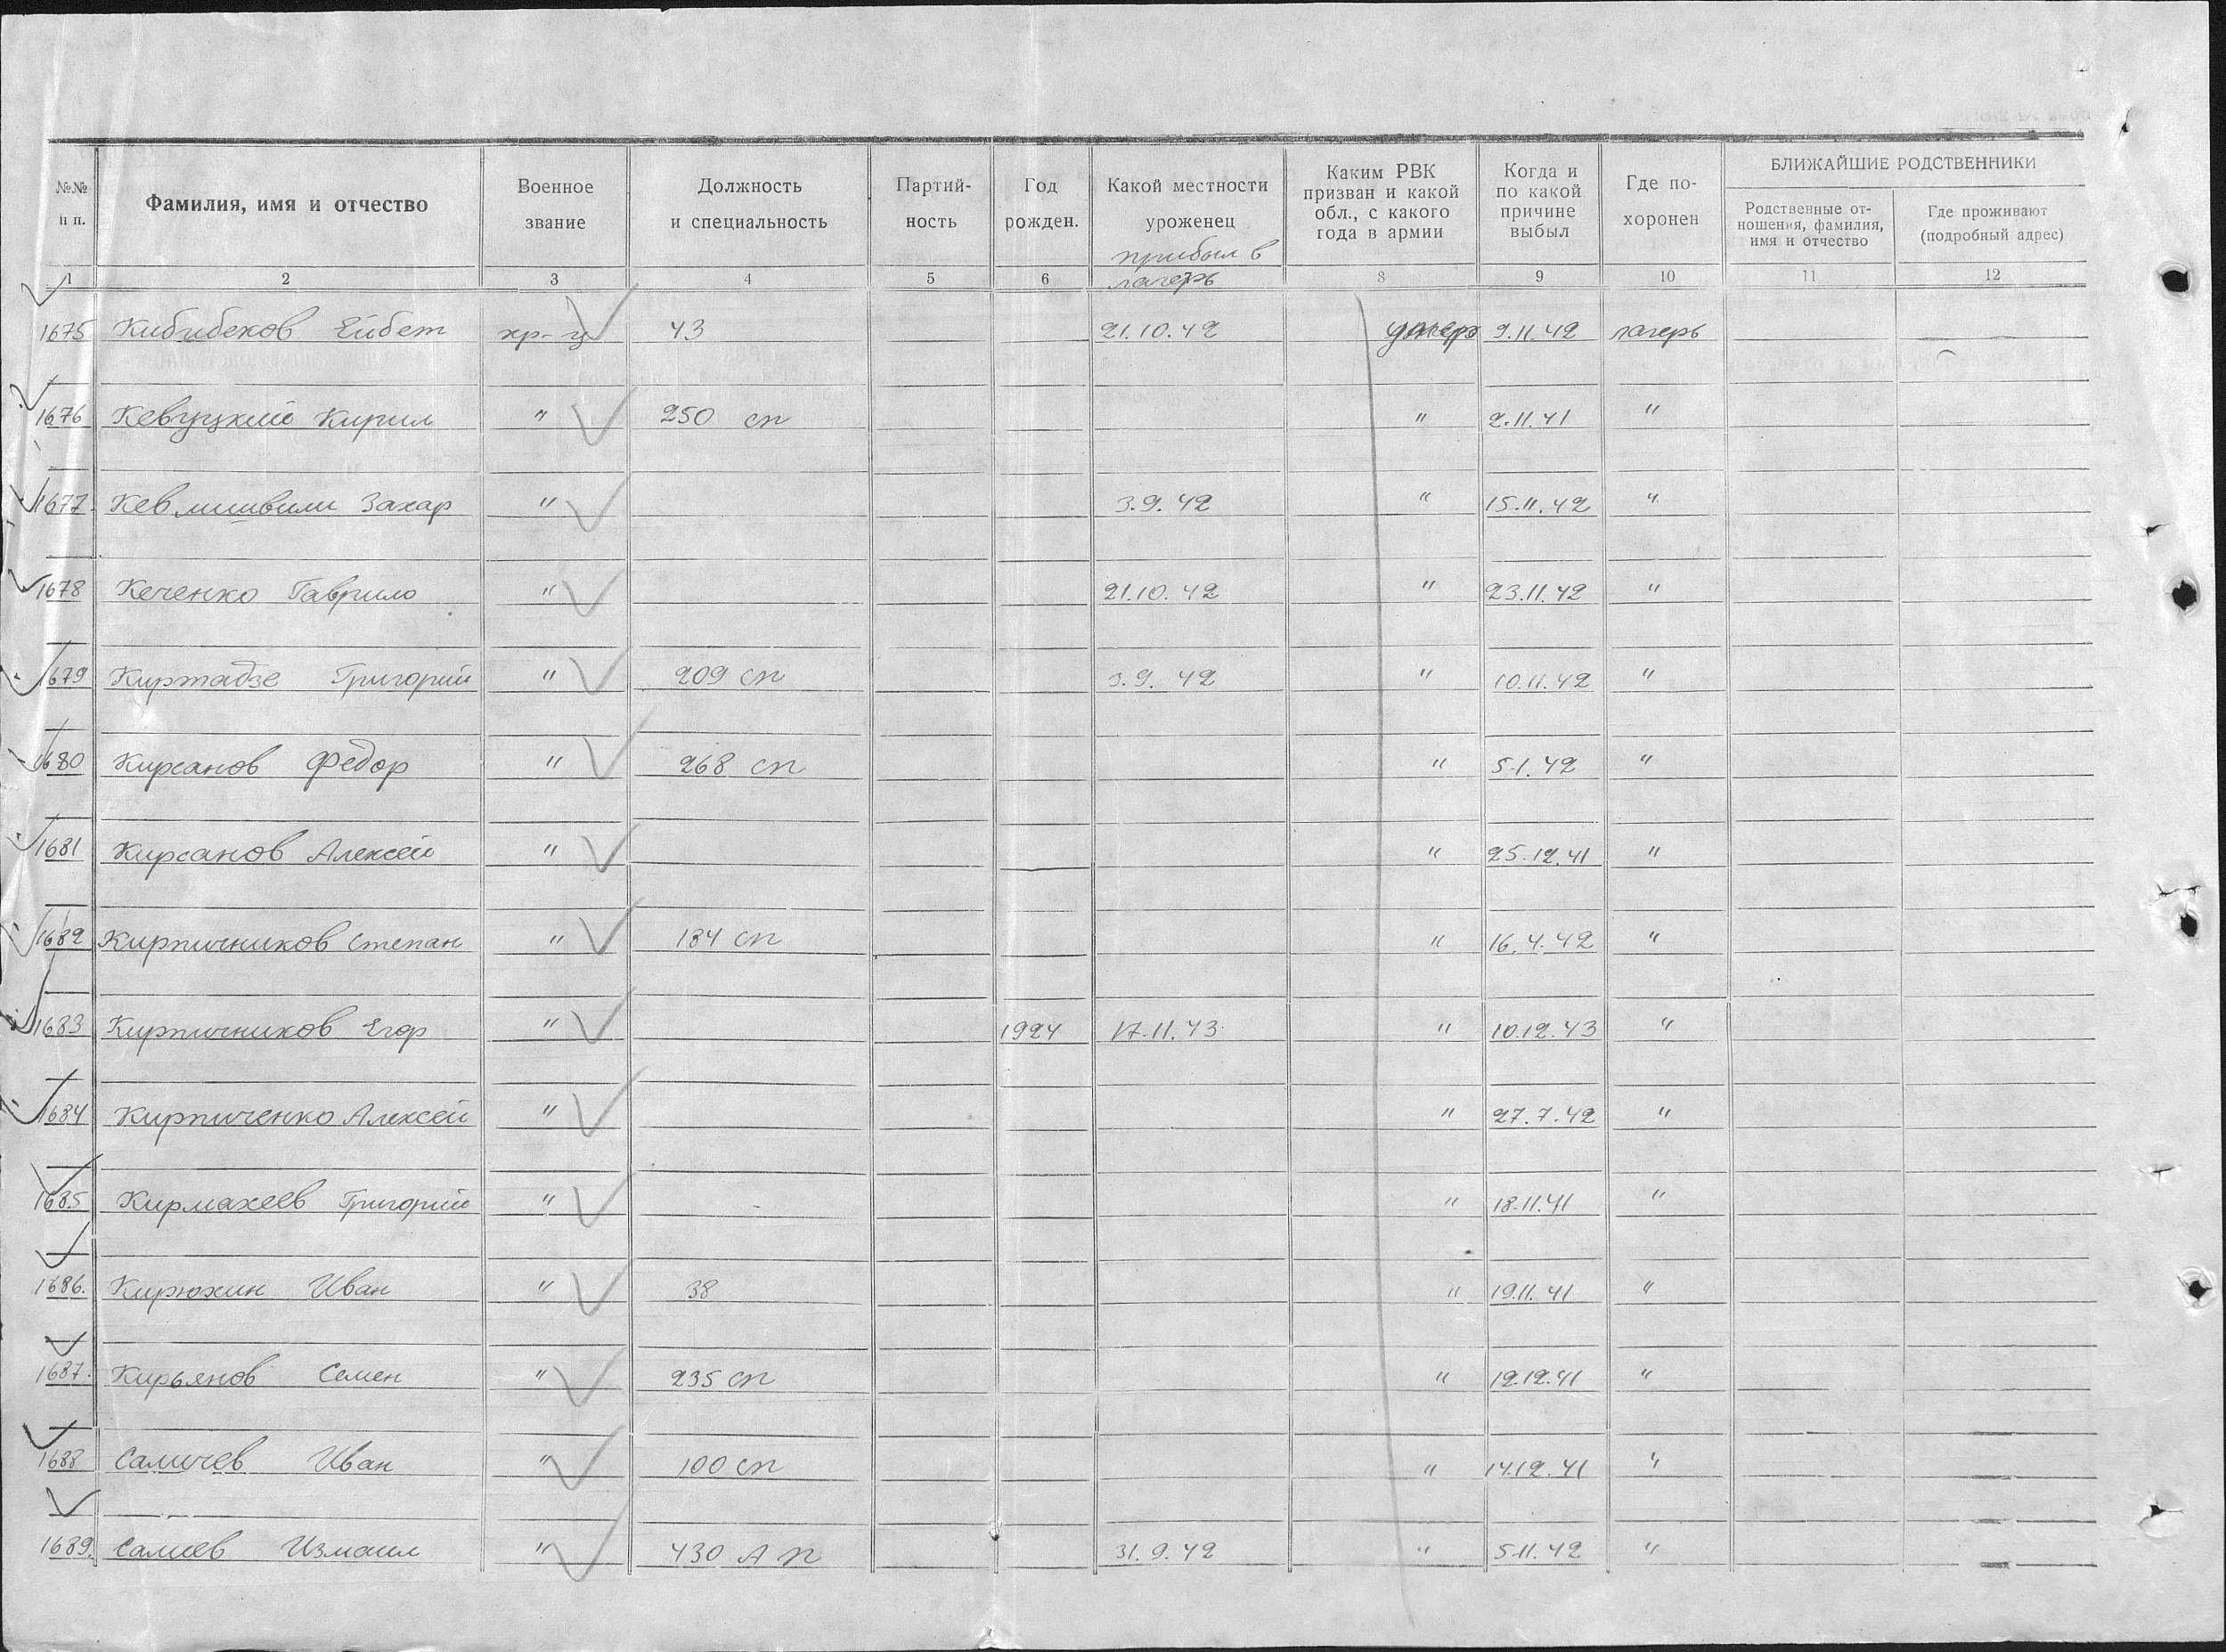 №№ п п.
Фамилия, имя и отчество
Военное звание
Должность и специальность
Партий- ность
Год рожден.
Какой местности уроженец
прибыл в лагерь
Каким РВК призван и какой обл., с какого года в армии
Когда и по какой причине выбыл
Где по- хоронен
БЛИЖАЙШИЕ РОДСТВЕННИКИ
Родственные от- ношения, фамилия, имя и отчество
Где проживают (подробный адрес)
1 2 3 4 5 6 7 8 9 10 11 12
1675 Кибибеков Ейбет кр-ц 43 21.10.42 умер 9.11.42 лагерь
1676 Кевуцкий Кирил " 250 сп " 2.11.41 "
1677 Кевлишвили Захар " 3.9.42 " 15.11.42 "
1678 Кеченко Гаврило " 21.10.42 " 23.11.42 "
1679 Киртадзе Григорий " 209 сп 3.9.42 " 10.11.42 "
1680 Кирсанов Федор " 268 сп " 5.1.42 "
1681 Кирсанов Алексей " " 25.12.41 "
1682 Кирпичников Степан " 184 сп " 16.4.42 "
1683 Кирпичников Егор " 1924 17.11.43 " 10.12.43 "
1684 Кирпиченко Алексей " " 27.7.42 "
1685 Кирмахеев Григорий " " 18.11.41 "
1686. Кирюхин Иван " 38 " 19.11.41 "
1687. Кирьянов Семен " 235 сп " 12.12.41 "
1688 Саличев Иван " 100 сп " 14.12.41 "
1689. Салиев Измаил " 430 АП 31.9.42 " 5.11.42 "